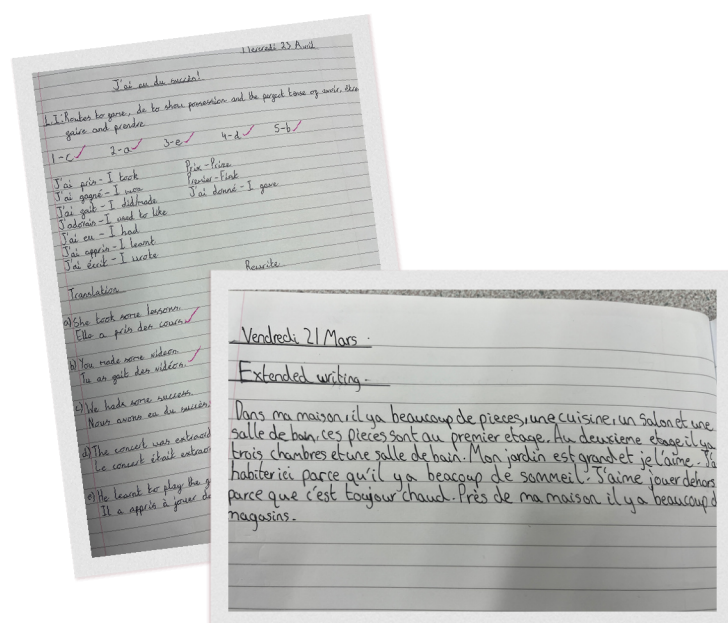 Mercredi 23 Avril
J'ai eu du succès!
L.I: Routes to parse, de to show possession and the perfect tense of avoir, être
faire and prendre
1-c 2-a 3-e 4-d 5-b
J'ai pris - I took
J'ai gagné - I won
J'ai fait - I did/made
J'adorais - I used to like
J'ai eu - I had
J'ai appris - I learnt
J'ai écrit - I wrote
Prix - Prize
Premier - First
J'ai donné - I gave
Rewrite
Translation
a) She took some lessons.
Elle a pris des cours.
b) You made some videos.
Tu as fait des vidéos.
c) We hads some success.
Nous avons eu du succès.
d) The concert was
Le concert était
e) He learnt to play the g
Il a appris à jouer de
Vendredi 21 Mars.
Extended writing.
Dans ma maison, il y a beaucoup de pieces, une cuisine, un salon et une
salle de bain, ces pieces sont au premier etage. Au deuxieme etage il y a
trois chambres et une salle de bain. Mon jardin est grand et je l'aime. J'a
habiter ici parce qu'il y a beacoup de sommeil. J'aime jouer dehors
parce que c'est toujour chaud. Près de ma maison il y a beaucoup d
magasins.